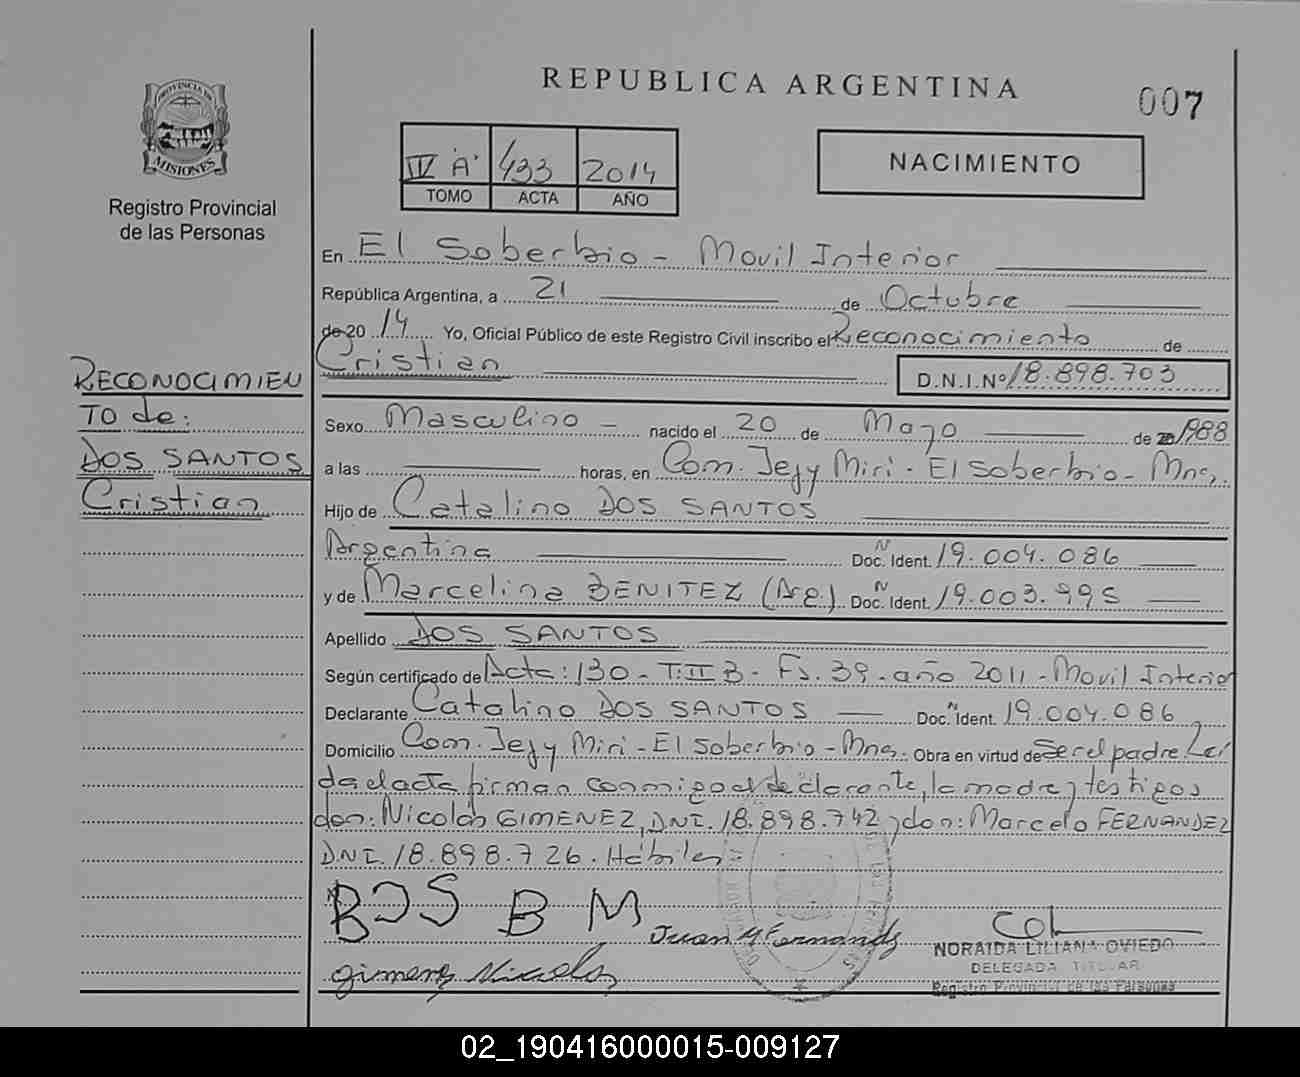 PROVINCIA DE
MISIONES
Registro Provincial
de las Personas
RECONOCIMIEN
TO de:
DOS SANTOS
Cristian
REPUBLICA ARGENTINA
007
IV "A" 433 2014
TOMO ACTA AÑO
NACIMIENTO
En El Soberbio - Movil Interior
República Argentina, a 21 de Octubre
de 20 14 Yo, Oficial Público de este Registro Civil inscribo el Reconocimiento de
Cristian D.N.I.Nº 18.898.703
Sexo Masculino - nacido el 20 de Mayo de 1988
a las horas, en Com. Jejy Miri - El Soberbio - Mns.
Hijo de Catalino DOS SANTOS
Argentina Doc. N Ident. 19.004.086
y de Marcelina BENITEZ (Arg.) Doc. N Ident. 19.003.995
Apellido DOS SANTOS
Según certificado de Acta: 130 - T: II B - Fs. 39 - año 2011 - Movil Interior
Declarante Catalino DOS SANTOS Doc. N Ident. 19.004.086
Domicilio Com. Jejy Miri - El Soberbio - Mns. Obra en virtud de Ser el padre. Leí
da el acta firman conmigo el declarante, la madre y testigos
don: Nicolás GIMENEZ, DNI. 18.898.742 y don: Marcelo FERNANDEZ
DNI. 18.898.726. Hábiles
B M
Juan M Fernandez
Gimenez Nicolas
NORAIDA LILIANA OVIEDO
DELEGADA TITULAR
Registro Provincial de las Personas
02_190416000015-009127